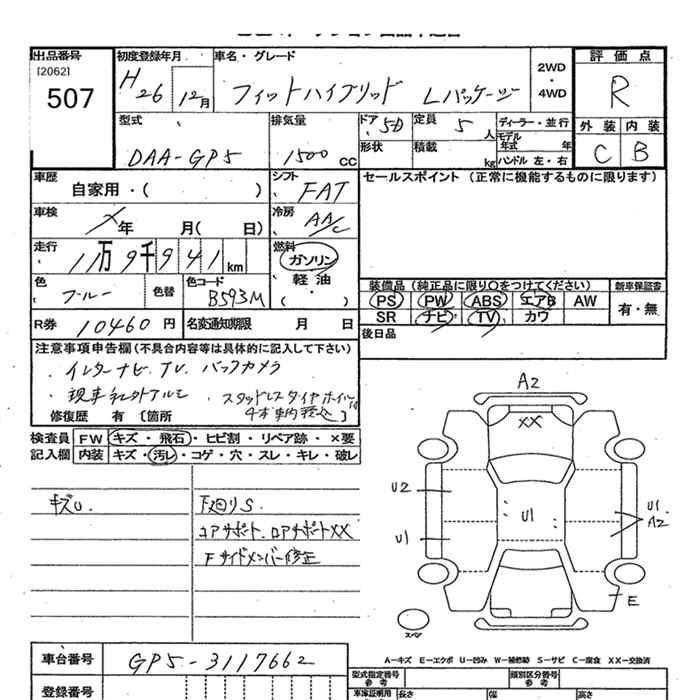 出品番号
[20621]
507
初度登録年月
H 26 12月
車名・グレード
フィットハイブリッド Lパッケージ
2WD
・
4WD
評価点
R
型式
DAA-GP5
排気量
1500 CC
ドア 5D
形状
定員 5 人
積載 kg
ディーラー・並行
モデル年式 年
ハンドル 左・右
外装 内装
C B
車歴
自家用・( )
シフト
FAT
セールスポイント (正常に機能するものに限ります)
車検
年 月( 日)
冷房
AAC
走行
1万9千941km
燃料
ガソリン
軽油
・
( )
色
ブルー
色替
色コード
B593M
装備品(純正品に限り○をつけてください)
新車保証書
PS PW ABS エアB AW
有・無
SR ナビ TV カワ
R券 10460円
名変通知期限 月 日
後日品
注意事項申告欄(不具合内容等は具体的に記入して下さい)
インターナビ TV. バックカメラ
現車社外アルミ スタッドレスタイヤホイル付
4本車内積込
修復歴 有 [箇所 ]
検査員
記入欄
FW キズ・飛石・ヒビ割・リペア跡・×要
内装 キズ・汚レ・コゲ・穴・スレ・キレ・破レ
キズU.
下廻りS
コアサポート. ロアサポートXX
Fサイドメンバー修正
A2
XX
U2
U1
U1
U1
A2
E
スペア
A-キズ E-エクボ U-凹み W-補修跡 S-サビ C-腐食 XX-交換済
車台番号
GP5-3117662
登録番号
型式指定番号
参考
類別区分番号
参考
車庫証明用
長さ 幅 高さ